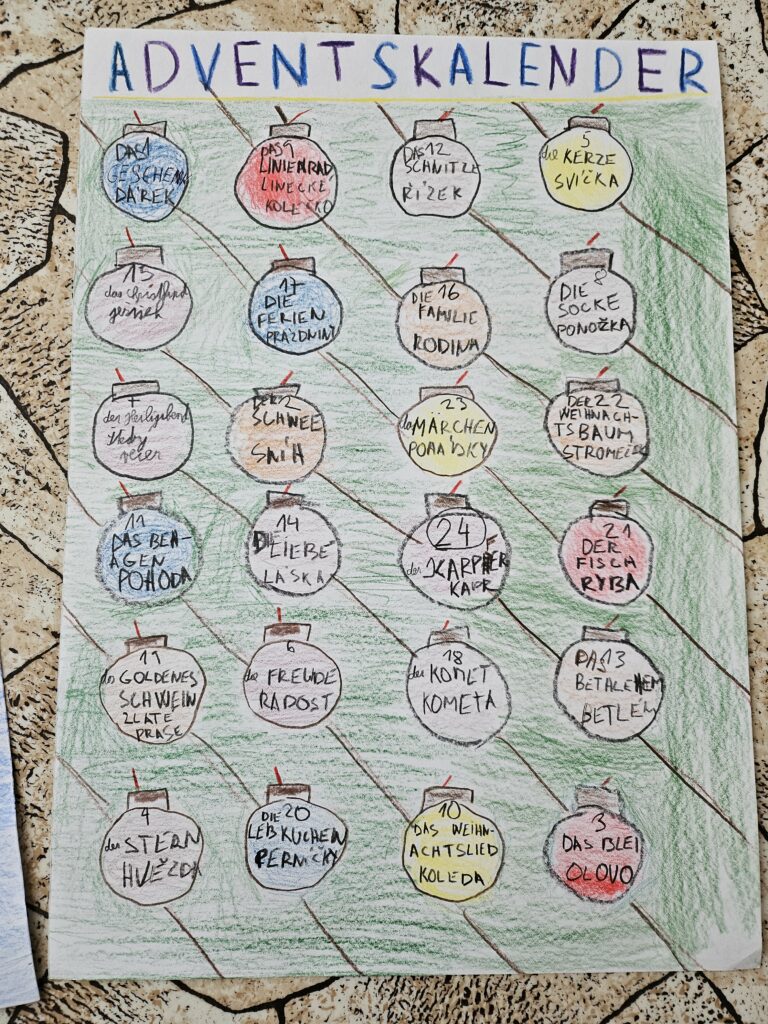 ADVENTSKALENDER
DAS 1
GESCHENK
DÁREK
DAS 9
LINIENRAD
LINECKÉ
KOLEČKO
DAS 12
SCHNITZE
ŘÍZEK
5
die KERZE
SVÍČKA
15
das Christkind
17
DIE
FERIEN
PRÁZDNINY
DIE 16
FAMILIE
RODINA
8
DIE
SOCKE
PONOŽKA
7
der Heiligabend
DER 2
SCHNEE
SNÍH
23
MÄRCHEN
POHÁDKY
DER 22
WEIHNACH-
TSBAUM
STROMEČEK
11
DAS BEH-
AGEN
POHODA
14
DIE LIEBE
LÁSKA
24
der KARPFER
KAPR
21
DER
FISCH
RYBA
19
GOLDENES
SCHWEIN
ZLATÉ
PRASE
6
die FREUDE
RADOST
18
der KOMET
KOMETA
DAS 13
BETHLEHEM
BETLÉM
4
der STERN
HVĚZDA
DIE 20
LEBKUCHEN
PERNÍČKY
10
DAS WEIHN-
ACHTSLIED
KOLEDA
3
DAS BLEI
OLOVO